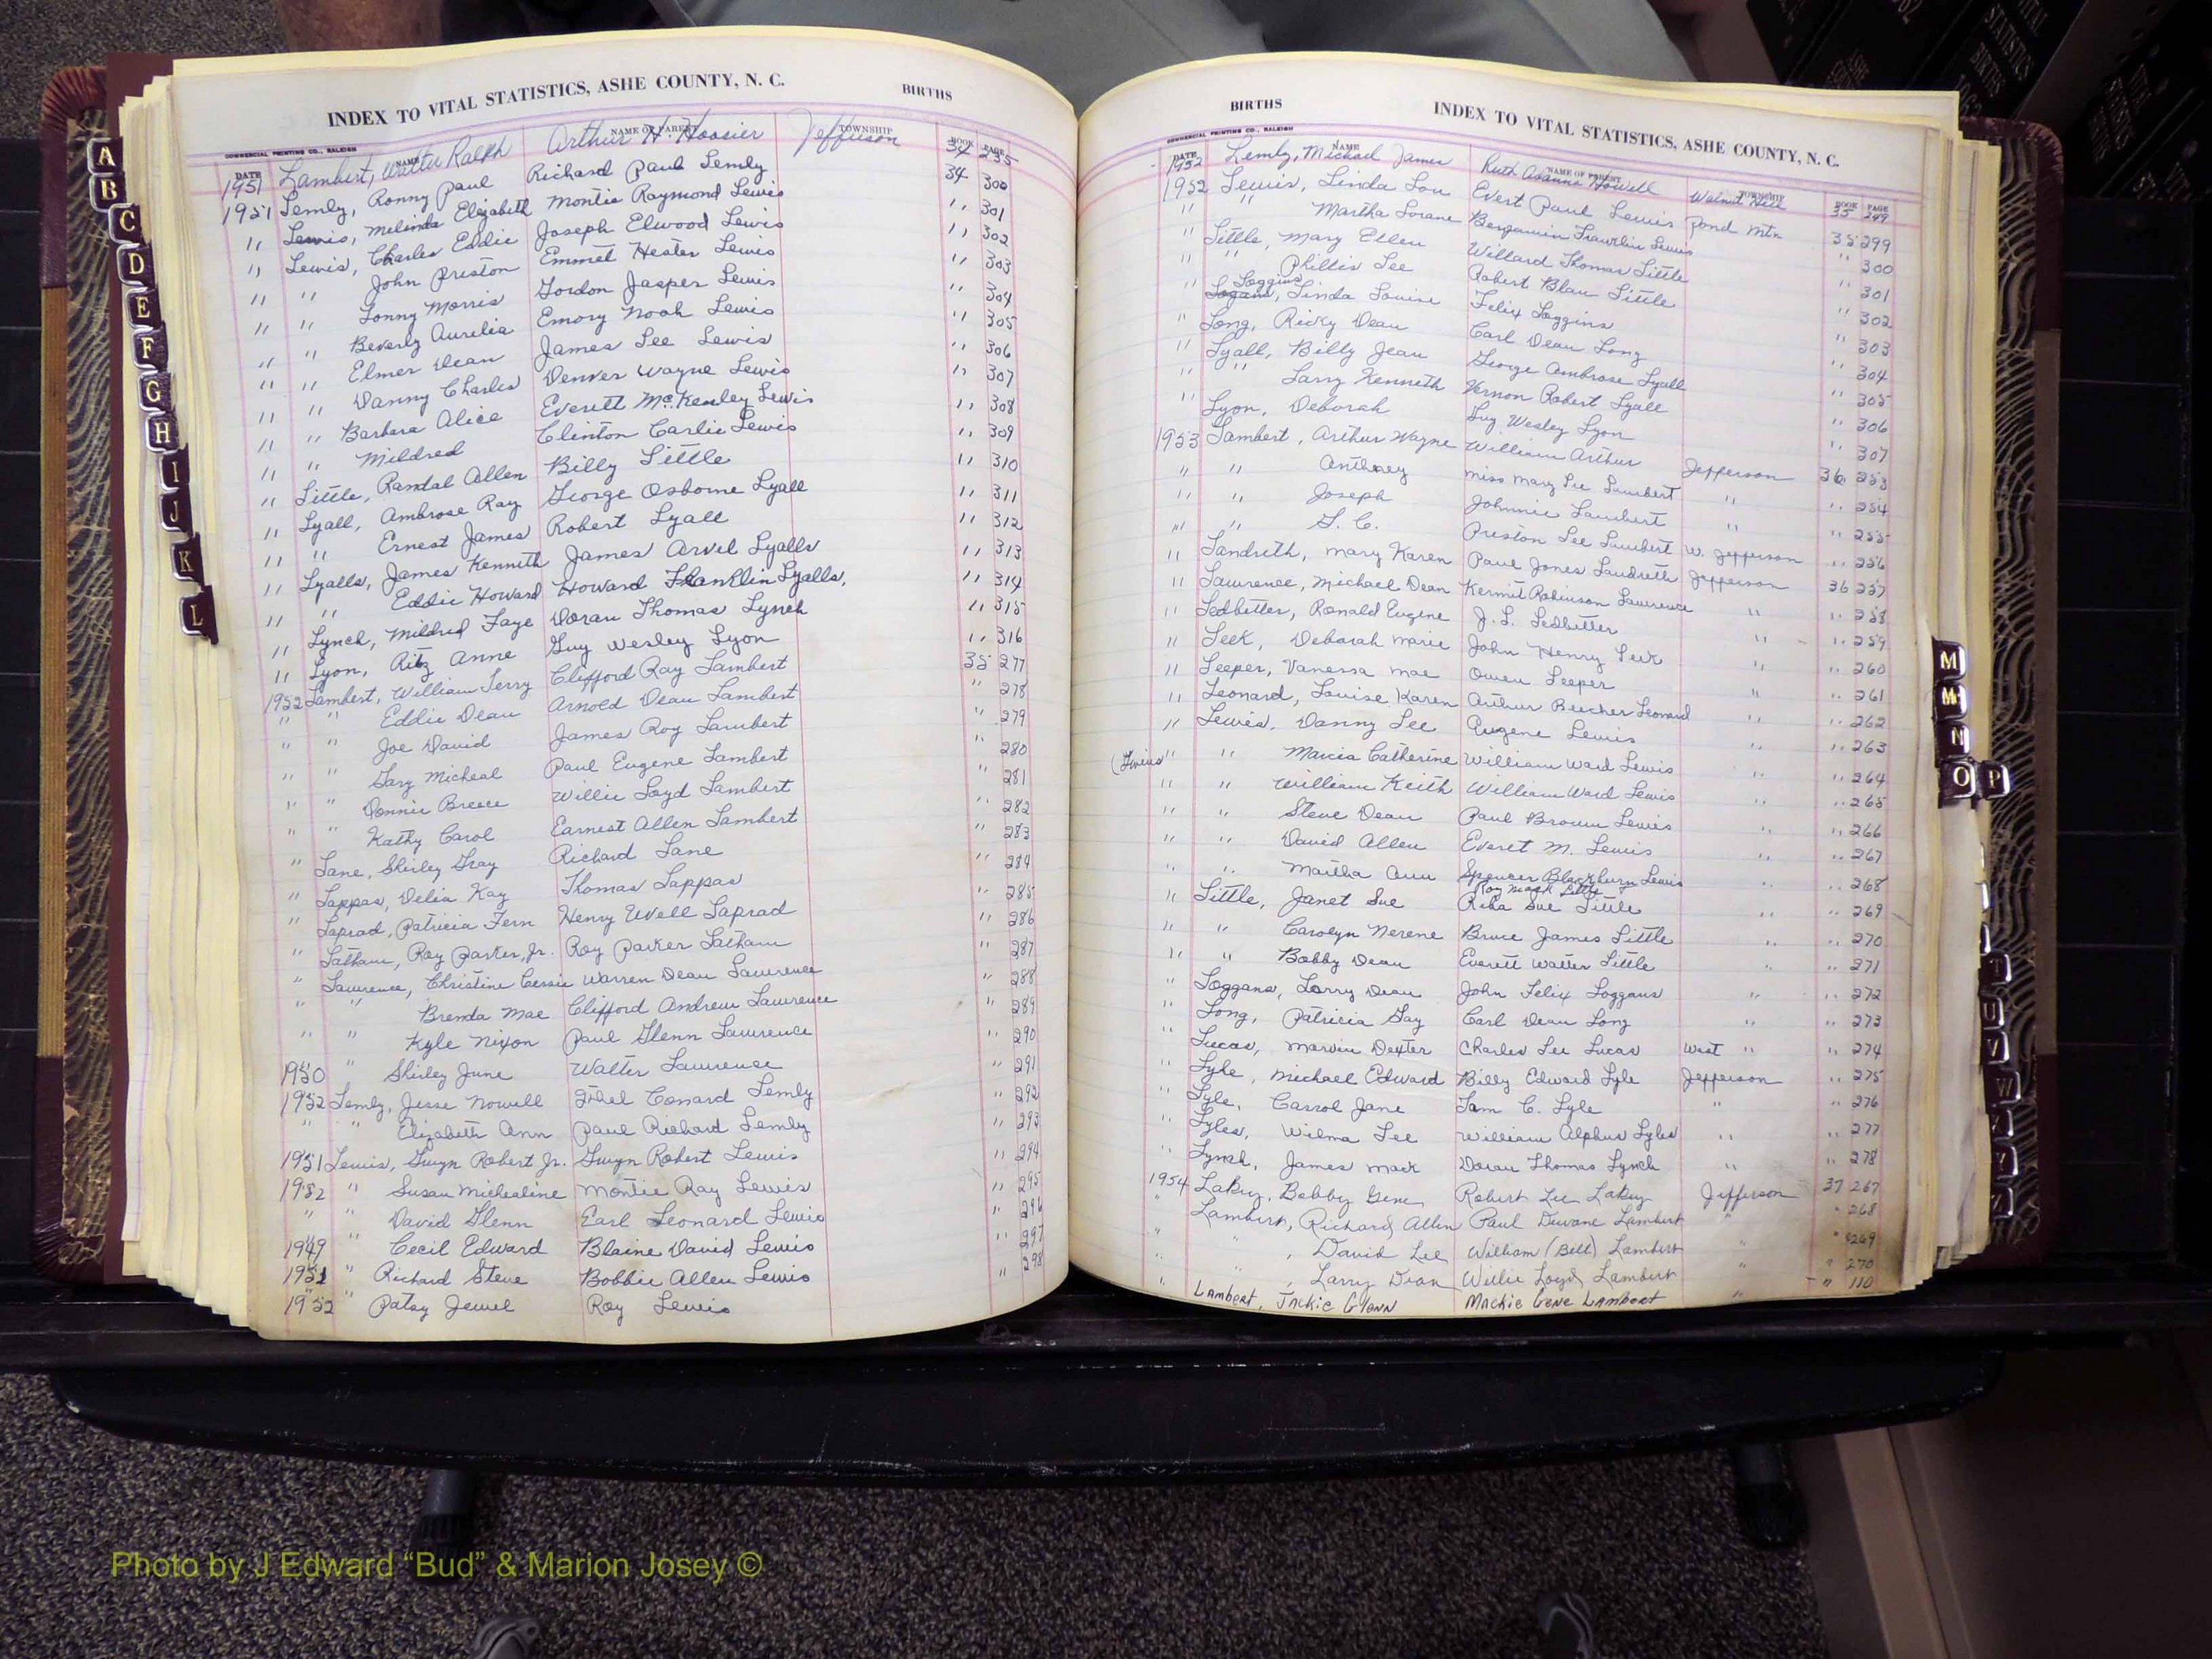 INDEX TO VITAL STATISTICS, ASHE COUNTY, N. C. BIRTHS
COMMERCIAL PRINTING CO., RALEIGH
DATE NAME NAME OF PARENT TOWNSHIP BOOK PAGE
1951 Lambert, Walter Ralph Arthur H. Hoosier Jefferson 34 235
1951 Lemly, Ronny Paul Richard Paul Lemly 34 300
" Lewis, Melinda Elizabeth Montie Raymond Lewis " 301
" Lewis, Charles Eddie Joseph Elwood Lewis " 302
" " John Preston Emmet Hester Lewis " 303
" " Lonny Morris Gordon Jasper Lewis " 304
" " Beverly Aurelia Emory Noah Lewis " 305
" " Elmer Dean James Lee Lewis " 306
" " Danny Charles Denver Wayne Lewis " 307
" " Barbara Alice Everett McKenley Lewis " 308
" " Mildred Clinton Carlie Lewis " 309
" Little, Randal Allen Billy Little " 310
" Lyall, Ambrose Ray George Osborne Lyall " 311
" " Ernest James Robert Lyall " 312
" Lyalls, James Kenneth James Arvel Lyalls " 313
" " Eddie Howard Howard Franklin Lyalls, " 314
" Lynch, Mildred Faye Doran Thomas Lynch " 315
" Lyon, Ritz Anne Guy Wesley Lyon " 316
1952 Lambert, William Terry Clifford Ray Lambert 35 277
" " Eddie Dean Arnold Dean Lambert " 278
" " Joe David James Roy Lambert " 279
" " Gary Micheal Paul Eugene Lambert " 280
" " Donnie Breece Willie Loyd Lambert " 281
" " Kathy Carol Earnest Allen Lambert " 282
" Lane, Shirley Gray Richard Lane " 283
" Lappas, Delia Kay Thomas Lappas " 284
" Laprad, Patricia Fern Henry Uvell Laprad " 285
" Latham, Roy Parker, Jr. Roy Parker Latham " 286
" Lawrence, Christine Cassie Warren Dean Lawrence " 287
" " Brenda Mae Clifford Andrew Lawrence " 288
" " Kyle Nixon Paul Glenn Lawrence " 289
1950 " Shirley June Walter Lawrence " 290
1952 Lemly, Jesse Nowell Ethel Conard Lemly " 291
" " Elizabeth Ann Paul Richard Lemly " 292
1951 Lewis, Gwyn Robert Jr. Gwyn Robert Lewis " 293
1952 " Susan Michealine Montie Ray Lewis " 294
" " David Glenn Earl Leonard Lewis " 295
1949 " Cecil Edward Blaine David Lewis " 296
1951 " Richard Steve Bobbie Allen Lewis " 297
1952 " Patsy Jewel Roy Lewis " 298
BIRTHS INDEX TO VITAL STATISTICS, ASHE COUNTY, N. C.
COMMERCIAL PRINTING CO., RALEIGH
DATE NAME NAME OF PARENT TOWNSHIP BOOK PAGE
1952 Lemly, Michael James Ruth Howell Walnut Hill 35 249
1952 Lewis, Linda Lou Evert Paul Lewis Pond Mtn 35 299
" " Martha Lorane Benjamin Franklin Lewis " 300
" Little, Mary Ellen Willard Thomas Little " 301
" " Phillis Lee Robert Blan Little " 302
" Loggins, Linda Louise Felix Loggins " 303
" Long, Ricky Dean Carl Dean Long " 304
" Lyall, Billy Jean George Ambrose Lyall " 305
" " Larry Kenneth Vernon Robert Lyall " 306
" Lyon, Deborah Guy Wesley Lyon " 307
1953 Lambert, Arthur Wayne William Arthur Jefferson 36 253
" " Anthney Miss Mary Lee Lambert " " 254
" " Joseph Johnnie Lambert " " 255
" " G. C. Preston Lee Lambert W. Jefferson " 256
" Landreth, Mary Karen Paul Jones Landreth Jefferson 36 257
" Lawrence, Michael Dean Kermit Robinson Lawrence " " 258
" Ledbetter, Ronald Eugene J. L. Ledbetter " " 259
" Leek, Deborah Marie John Henry Leek " " 260
" Leeper, Vanessa Mae Owen Leeper " " 261
" Leonard, Louise Karen Arthur Beecher Leonard " " 262
" Lewis, Danny Lee Eugene Lewis " " 263
(Twins " " Marcia Catherine William Ward Lewis " " 264
" " William Keith William Ward Lewis " 265
" " Steve Dean Paul Brown Lewis " " 266
" " David Allen Everet M. Lewis " " 267
" " Martha Ann Spencer Blackburn Lewis " " 268
Roy Mack Little
" Little, Janet Sue Reba Sue Little " " 269
" " Carolyn Nerene Bruce James Little " " 270
" " Bobby Dean Everett Walter Little " " 271
" Loggans, Larry Dean John Felix Loggans " " 272
" Long, Patricia Gay Carl Dean Long " " 273
" Lucas, Marvin Dexter Charles Lee Lucas West " " 274
" Lyle, Michael Edward Billy Edward Lyle Jefferson " 275
" Lyle, Carrol Jane Sam C. Lyle " " 276
" Lyles, Wilma Lee William Alphus Lyles " " 277
" Lynch, James Mack Doran Thomas Lynch " " 278
1954 Lakey, Bobby Gene Robert Lee Lakey Jefferson 37 267
" Lambert, Richard Allen Paul Dewane Lambert " " 268
" " , David Lee William (Bill) Lambert " " 269
" " , Larry Dean Willie Loyd Lambert " 270
" Lambert, Jackie Glenn Mackie Gene Lambert " " 110
A
B
C
D
E
F
G
H
I
J
K
L
M
Mc
N
O P
T
U
V
W
Y
Z
VITAL STATISTICS BIRTHS
ASHE
Photo by J Edward "Bud" & Marion Josey ©